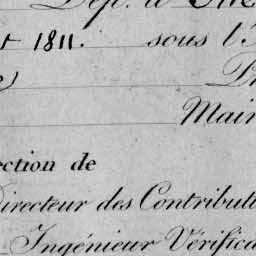 Dép. d
1811. sous l
Mair
ection de
Directeur des Contributi
Ingénieur Vérifica